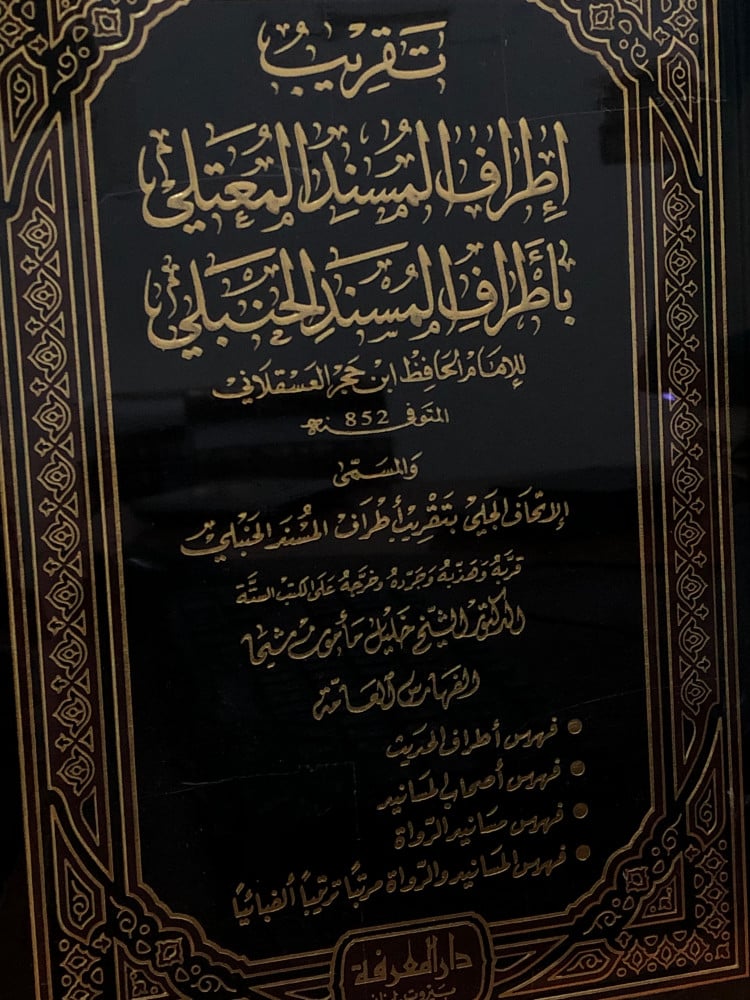 تقريب
إطراف المسند المعتلي
بأطراف المسند الحنبلي
للإمام الحافظ ابن حجر العسقلاني
المتوفى 852 سنة هـ
والمسمى
الإتحاف الجلي بتقريب أطراف المسند الحنبلي
قربه وهذبه وجرده وخرجه على الكتب الستة
الدكتور الشيخ خليل مأمون شيحا
الفهارس العامة
• فهرس أطراف الحديث
• فهرس أصحاب المسانيد
• فهرس مسانيد الرواة
• فهرس المسانيد والرواة مرتبا ترتيبا ألفبائيا
دار المعرفة
بيروت لبنان